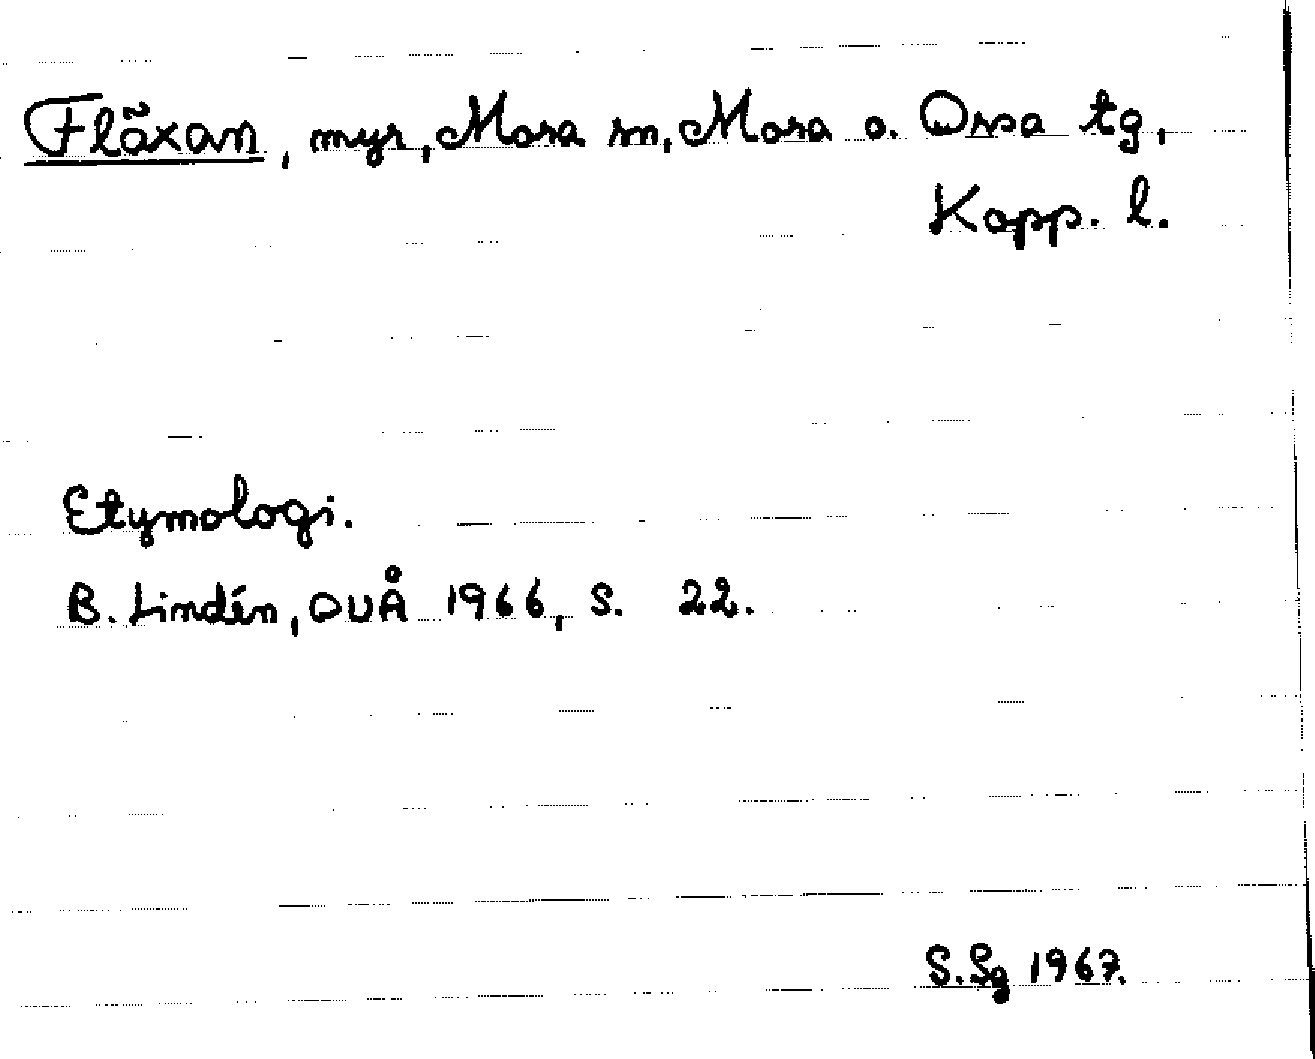 Fläxan, myr, Mora sn, Mora o. Orsa tg,
Kopp. l.
Etymologi.
B. Lindén, OUÅ 1966, s. 22.
S.Sg 1967.